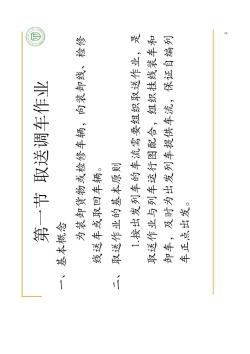 第一节 取送调车作业
一、 基本概念
为装卸货物或检修车辆，向装卸线、检修
线送车或取回车辆。
二、 取送作业的基本原则
1.按出发列车的车流需要组织取送作业，是
取送作业与列车运行图配合，组织挂线装车和
卸车，及时为出发列车提供车流，保证自编列
车正点出发。